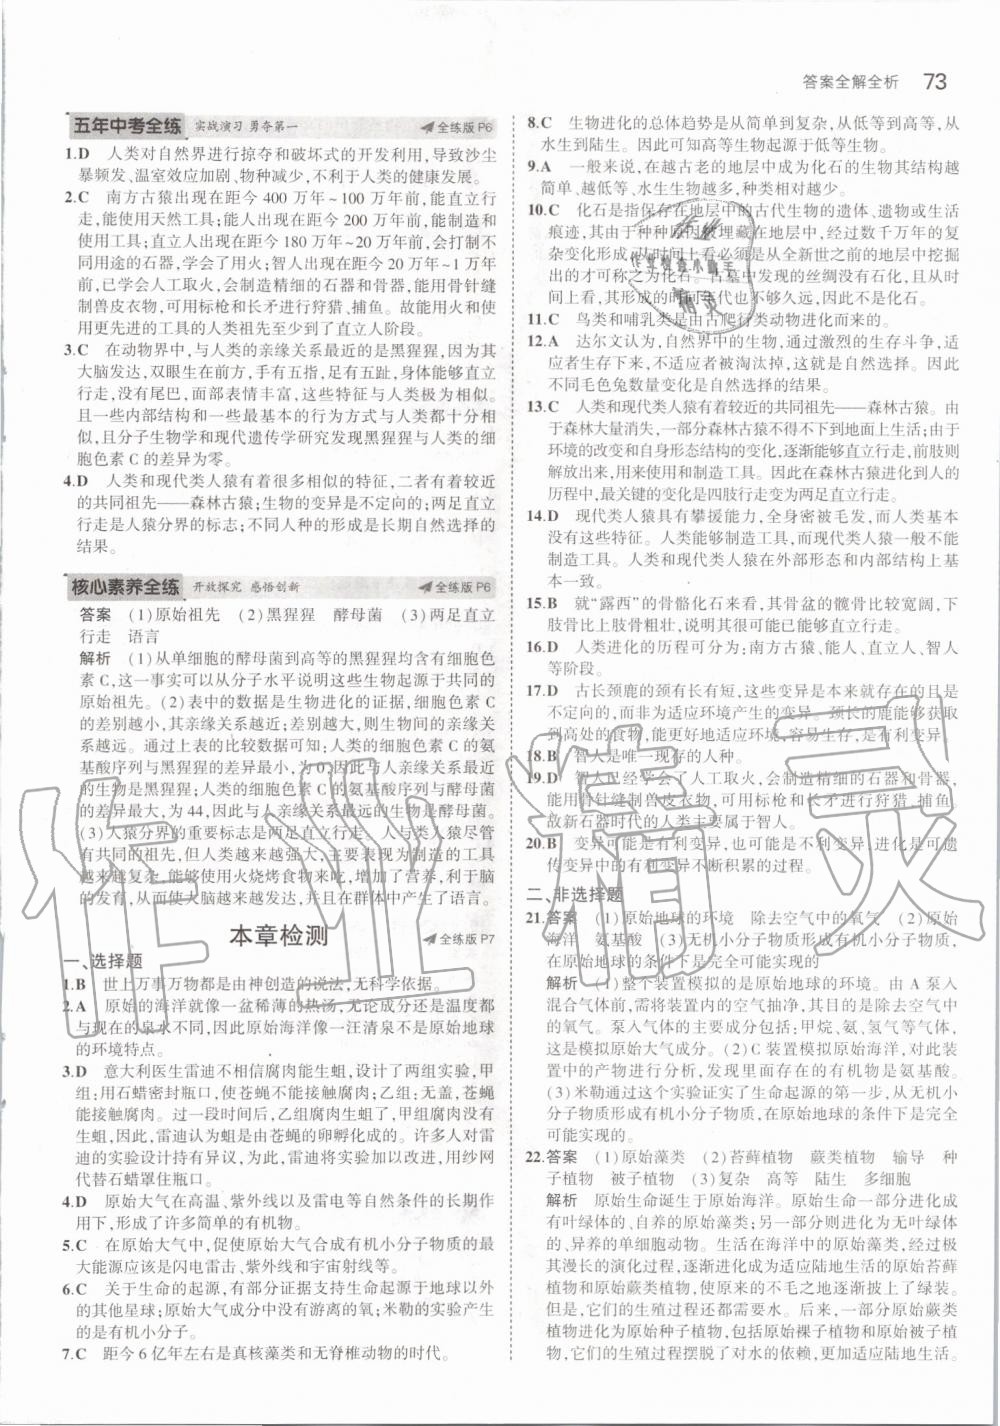 答案全解全析 73
五年中考全练 实战演习 勇夺第一 全练版 P6
1.D 人类对自然界进行掠夺和破坏式的开发利用,导致沙尘
暴频发、温室效应加剧、物种减少,不利于人类的健康发展。
2.C 南方古猿出现在距今 400 万年~100 万年前,能直立行
走,能使用天然工具;能人出现在距今 200 万年前,能制造和
使用工具;直立人出现在距今 180 万年~20 万年前,会打制不
同用途的石器,学会了用火;智人出现在距今 20 万年~1 万年
前,已学会人工取火,会制造精细的石器和骨器,能用骨针缝
制兽皮衣物,可用标枪和长矛进行狩猎、捕鱼。故能用火和使
用更先进的工具的人类祖先至少到了直立人阶段。
3.C 在动物界中,与人类的亲缘关系最近的是黑猩猩,因其
大脑发达,双眼生在前方,手有五指,足有五趾,身体能直立行
走,没有尾巴,面部表情丰富,这些特征与人类极为相似。
且一些内部结构和一些最基本的行为方式与人类都十分相
似,且分子生物学和现代遗传学研究发现黑猩猩与人类的细
胞色素 C 的差异为零。
4.D 人类和现代类人猿有着很多相似的特征,二者有着较近
的共同祖先——森林古猿;生物的变异是不定向的;两足直立
行走是人猿分界的标志;不同人种的形成是长期自然选择的
结果。
核心素养全练 开放探究 感悟创新 全练版 P6
答案 (1)原始祖先 (2)黑猩猩 酵母菌 (3)两足直立
行走 语言
解析 (1)从单细胞的酵母菌到高等的黑猩猩均含有细胞色
素 C,这一事实可以从分子水平说明这些生物起源于共同的
原始祖先。(2)表中的数据是生物进化的证据,细胞色素 C
的差别越小,其亲缘关系越近;差别越大,则生物间的亲缘关
系越远。通过上表的比较数据可知;人类的细胞色素 C 的氨
基酸序列与黑猩猩的差异最小,为 0,因此与人类亲缘关系最近
的生物是黑猩猩;人类的细胞色素 C 的氨基酸序列与酵母菌
的差异最大,为 44,因此与人亲缘关系最远的生物是酵母菌。
(3)人猿分界的重要标志是两足直立行走。人与类人猿尽管
有共同的祖先,但人类越来越强大,主要是因为制造的工具
越来越复杂,能够使用火烧烤食物来吃,增加了营养,利于脑
的发育,从而使大脑越来越发达,并且在群体中产生了语言。
本章检测 全练版 P7
一、选择题
1.B 世上万事万物都是由神创造的说法,无科学依据。
2.A 原始的海洋就像一盆稀薄的热汤,无论成分还是温度都
与现在的泉水不同,因此原始海洋像一汪清泉不是原始地球
的环境特点。
3.D 意大利医生雷迪不相信腐肉能生蛆,设计了两组实验,甲
组:用石蜡密封瓶口,使苍蝇不能接触腐肉;乙组:无盖,苍蝇
能接触腐肉。过一段时间后,乙组腐肉生出了蛆,甲组腐肉没
有生出蛆,因此,雷迪认为蛆是由苍蝇的卵孵化成的。许多人对雷
迪的实验设计持有异议,为此,雷迪将实验加以改进,用纱网
代替石蜡罩住瓶口。
4.D 原始大气在高温、紫外线以及雷电等自然条件的长期作
用下,形成了许多简单的有机物。
5.C 在原始大气中,促使原始大气合成有机小分子物质的最
大能源应该是闪电雷击、紫外线和宇宙射线等。
6.C 关于生命的起源,有部分证据支持生命起源于地球以外
的其他星球;原始大气成分中没有游离的氧;米勒的实验产生
的是有机小分子。
7.C 距今 6 亿年左右是真核藻类和无脊椎动物的时代。
8.C 生物进化的总体趋势是从简单到复杂,从低等到高等,从
水生到陆生。因此可知高等生物起源于低等生物。
9.A 一般来说,在越古老的地层中成为化石的生物其结构越
简单、越低等、水生生物越多,种类相对越少。
10.C 化石是指保存在地层中的古代生物的遗体、遗物或生活
痕迹,其由于种种原因被埋藏在地层中,经过数千万年的复
杂变化形成;从时间上看必须是从全新世之前的地层中挖掘
出的才可称之为化石。古墓中发现的丝绸没有石化,且从时
间上看,其形成的时间年代也不够久远,因此不是化石。
11.C 鸟类和哺乳类是由古爬行类动物进化而来的。
12.A 达尔文认为,自然界中的生物,通过激烈的生存斗争,适
应者生存下来,不适应者被淘汰掉,这就是自然选择。因此
不同毛色兔数量变化是自然选择的结果。
13.C 人类和现代类人猿有着较近的共同祖先——森林古猿。由
于森林大量消失,一部分森林古猿不得不下到地面生活,由于
环境的改变和自身形态结构的变化,逐渐能够直立行走,前肢则
解放出来,用来使用和制造工具。因此在森林古猿进化到人的
历程中,最关键的变化是四肢行走变为两足直立行走。
14.D 现代类人猿具有攀援能力,全身密被毛发,而人类基本
没有这些特征。人类能够制造工具,而现代类人猿一般不能
制造工具。人类和现代类人猿在外部形态和内部结构上基
本一致。
15.B 就“露西”的骨骼化石来看,其骨盆的髋骨比较宽阔,下
肢骨比上肢骨粗壮,说明其很可能已能够直立行走。
16.D 人类进化的历程可分为:南方古猿、能人、直立人、智人
等阶段。
17.D 古长颈鹿的颈有长有短,这些变异是本来就存在的且是
不定向的,而非为适应环境产生的变异。颈长的鹿能够获取
到高处的食物,能更好地适应环境,容易生存,是有利变异。
18.B 智人是唯一现存的人种。
19.D 智人已经学会了人工取火,会制造精细的石器和骨器,
能用骨针缝制兽皮衣物,可用标枪和长矛进行狩猎、捕鱼,
故新石器时代的人类主要属于智人。
20.B 变异可能是有利变异,也可能是不利变异,进化是可遗
传变异中的有利变异不断积累的过程。
二、非选择题
21.答案 (1)原始地球的环境 除去空气中的氧气 (2)原始
海洋 氨基酸 (3)无机小分子物质形成有机小分子物质,
在原始地球的条件下是完全可能实现的
解析 (1)整个装置模拟的是原始地球的环境。由 A 泵入
混合气体前,需将装置内的空气抽净,其目的是除去空气中
的氧气。泵入气体的主要成分包括:甲烷、氨、氢气等气体,
这是模拟原始大气成分。(2)C 装置模拟原始海洋,对装置
中的产物进行分析,发现里面存在的有机物是氨基酸。
(3)米勒通过这个实验证实了生命起源的第一步,从无机小
分子物质形成有机小分子物质,在原始地球的条件下是完全
可能实现的。
22.答案 (1)原始藻类 (2)苔藓植物 蕨类植物 输导 种
子植物 被子植物 (3)复杂 高等 陆生 多细胞
解析 原始生命诞生于原始海洋。原始生命一部分进化成
有叶绿体的、自养的原始藻类;另一部分则进化成无叶绿体
的、异养的单细胞动物。生活在海洋中的原始藻类,经过极
其漫长的演化过程,逐渐进化成为适应陆地生活的原始苔藓
植物和原始蕨类植物,使原来的不毛之地披上了绿装。
但是,它们的生殖过程还都需要水。后来,一部分原始蕨类
植物进化为原始种子植物,包括原始裸子植物和原始被子植
物,它们的生殖过程摆脱了对水的依赖,更加适应陆地生活。
作业精灵
作业检查小助手
精灵